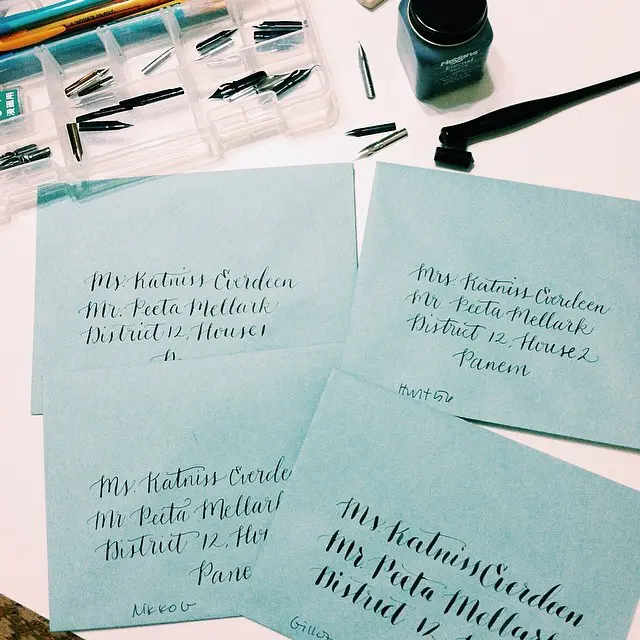 Higgins
Eternal
Ms. Katniss Everdeen
Mr. Peeta Mellark
District 12, House 1
Mrs. Katniss Everdeen
Mr Peeta Mellark
District 12, House 2
Panem
Hunt 56
Ms. Katniss Everde
Mr Peeta Mellar
District 12, Ho
Pane
Nikko G
Ms Katniss Everdeen
Mr Peeta Mellark
District 12
Gillot